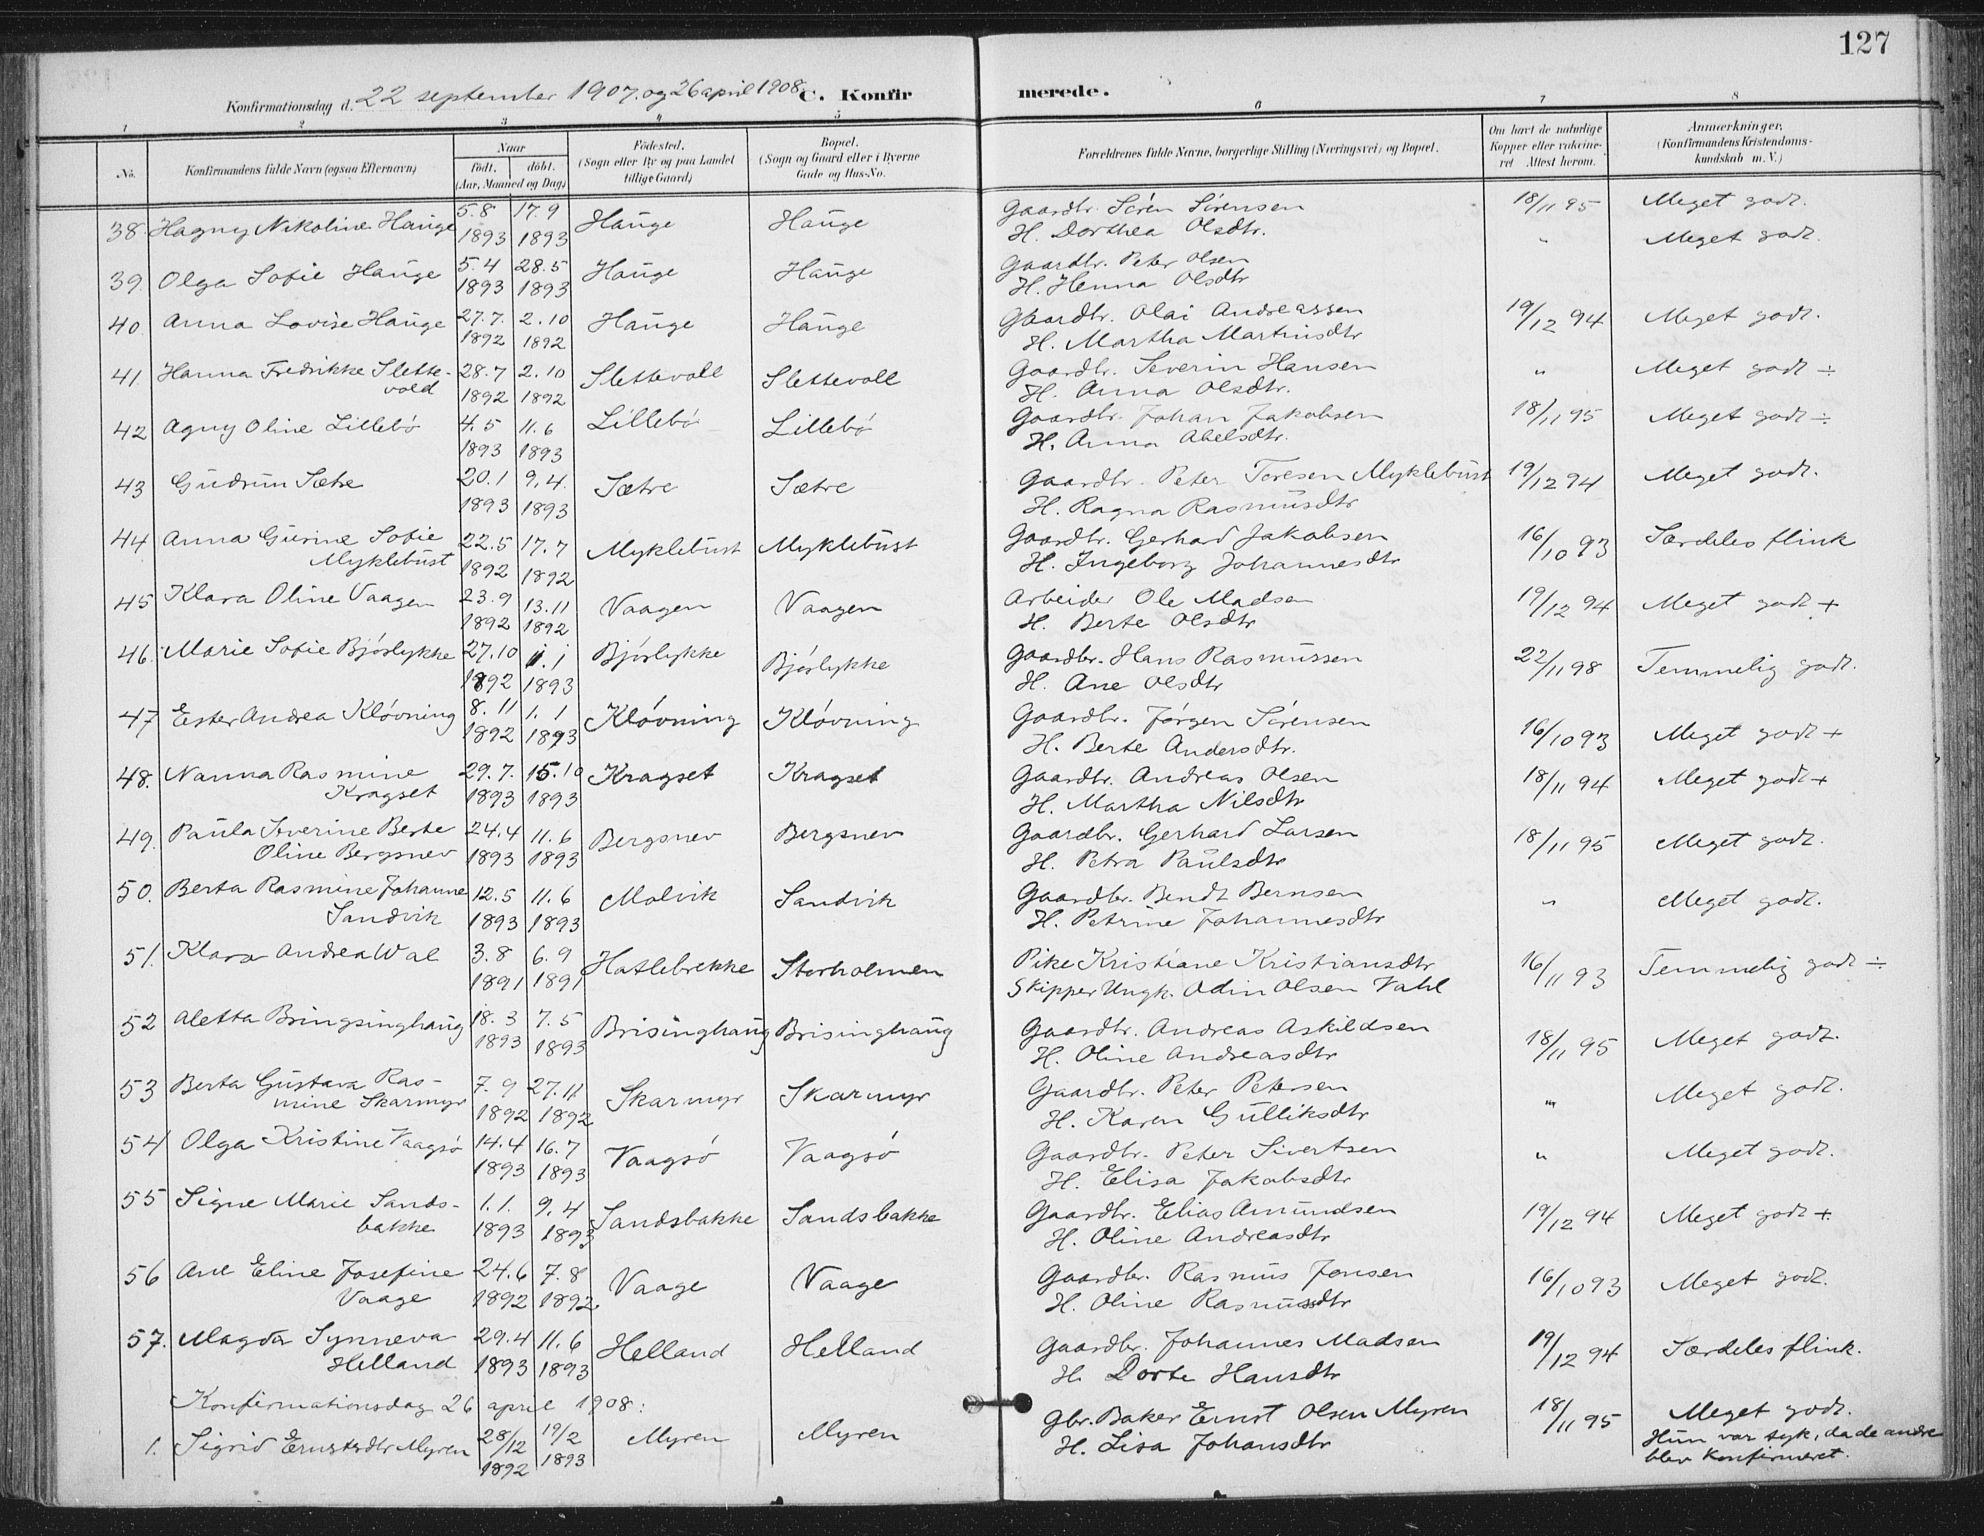 127
Konfirmationsdag d. 22 september 1907. og 26 april 1908. C. Konfirmerede.
1 2 3 4 5 6 7 8
No. Konfirmandens fulde Navn (ogsaa Efternavn) Naar født, døbt. (Aar, Maaned og Dag) Fødested. (Sogn eller By og paa Landet tillige Gaard) Bopæl. (Sogn og Gaard eller i Byerne Gade og Hus-No. Forældrenes fulde Navne, borgerlige Stilling (Næringsvei) og Bopæl. Om havt de naturlige Kopper eller vaccineret. Attest herom. Anmærkninger. (Konfirmandens Kristendomskundskab m. V.)
38. Hagny Nikoline Hauge 5.8 17.9 Hauge Hauge Gaardbr. Søren Sørensen 18/11 95 Meget godt.
1893 1893 H. Dorthea Olsdtr.
39. Olga Sofie Hauge 5.4 28.5 Hauge Hauge Gaardbr. Peter Olsen " Meget godt.
1893 1893 H. Henna Olsdtr
40. Anna Lovise Hauge 27.7. 2.10 Hauge Hauge Gaardbr. Olai Andreassen 19/12 94 Meget godt.
1892 1892 H. Martha Martinsdtr
41. Hanna Fredrikke Slette- 28.7 2.10 Slettevoll Slettevoll Gaardbr. Severin Hansen " Meget godt ÷
vold 1892 1892 H. Anna Olsdtr.
42 Agny Oline Lillebø 4.5 11.6 Lillebø Lillebø Gaardbr. Johan Jakobsen 18/11 95 Meget godt ÷
1893 1893 H. Anna Abelsdtr.
43 Gudrun Sætre 20.1 9.4. Sætre Sætre Gaardbr. Peter Toresen Myklebust 19/12 94 Meget godt.
1893 1893 H. Ragna Rasmusdtr
44 Anna Gurine Sofie 22.5 17.7 Myklebust Myklebust Gaardbr. Gerhard Jakobsen 16/10 93 Særdeles flink
Myklebust 1892 1892 H. Ingeborg Johannesdtr
45 Klara Oline Vaagen 23.9 13.11 Vaagen Vaagen Arbeider Ole Madsen 19/12 94 Meget godt +
1892 1892 H. Berte Olsdtr
46. Marie Sofie Bjørlykke 27.10 1.1 Bjørlykke Bjørlykke Gaardbr. Hans Rasmussen 22/11 98 Temmelig godt.
1892 1893 H. Ane Olsdtr
47 Ester Andrea Kløvning 8.11 1.1 Kløvning Kløvning Gaardbr. Jørgen Sørensen 16/10 93 Meget godt +
1892 1893 H. Berte Andersdtr.
48. Nanna Rasmine 29.7. 15.10 Kragset Kragset Gaardbr. Andreas Olsen 18/11 94 Meget godt +
Kragset 1893 1893 H. Martha Nilsdtr
49. Paula Severine Berte 24.4 11.6 Bergsnev Bergsnev Gaardbr. Gerhard Larsen 18/11 95 Meget godt.
Oline Bergsnev 1893 1893 H. Petra Paulsdtr
50. Berta Rasmine Johanne 12.5 11.6 Molvik Sandvik Gaardbr. Bendt Bernsen " Meget godt.
Sandvik 1893 1893 H. Petrine Johannesdtr
51. Klara Andrea Wal 3.8 6.9 Hatlebrekke Storholmen Pike Kristiane Kristiansdtr 16/11 93 Temmelig godt ÷
1891 1891 Skipper Ungk. Odin Olsen Vahl
52 Aletta Bringsinghaug 18.3 7.5 Brisinghaug Brisinghaug Gaardbr. Andreas Askildsen 18/11 95 Meget godt.
1893 1893 H. Oline Andreasdtr
53 Berta Gustava Ras- 7.9 27.11 Skarmyr Skarmyr Gaardbr. Peter Petersen " Meget godt.
mine Skarmyr 1892 1892 H. Karen Gulliksdtr
54 Olga Kristine Vaagsø 14.4 16.7 Vaagsø Vaagsø Gaardbr. Peter Sivertsen " Meget godt.
1893 1893 H. Elisa Jakobsdtr
55 Signe Marie Sands- 1.1. 9.4 Sandsbakke Sandsbakke Gaardbr. Elias Amundsen 19/12 94 Meget godt +
bakke 1893 1893 H. Oline Andreasdtr
56 Ane Eline Josefine 24.6 7.8 Vaage Vaage Gaardbr. Rasmus Jonsen 16/10 93 Meget godt.
Vaage 1892 1892 H. Oline Rasmusdtr
57. Magda Synneva 29.4 11.6 Helland Helland Gaardbr. Johannes Madsen 19/12 94 Særdeles flink.
Helland 1893 1893 H. Dorte Hansdtr
Konfirmationsdag 26 april 1908:
1. Sigrid Ernstsdtr Myren 28/12 19/2 Myren Myren Gbr. Baker Ernst Olsen Myren 18/11 95 Meget godt.
1892 1893 H. Lisa Johansdtr Hun var syk, da de andre
blev konfirmeret.